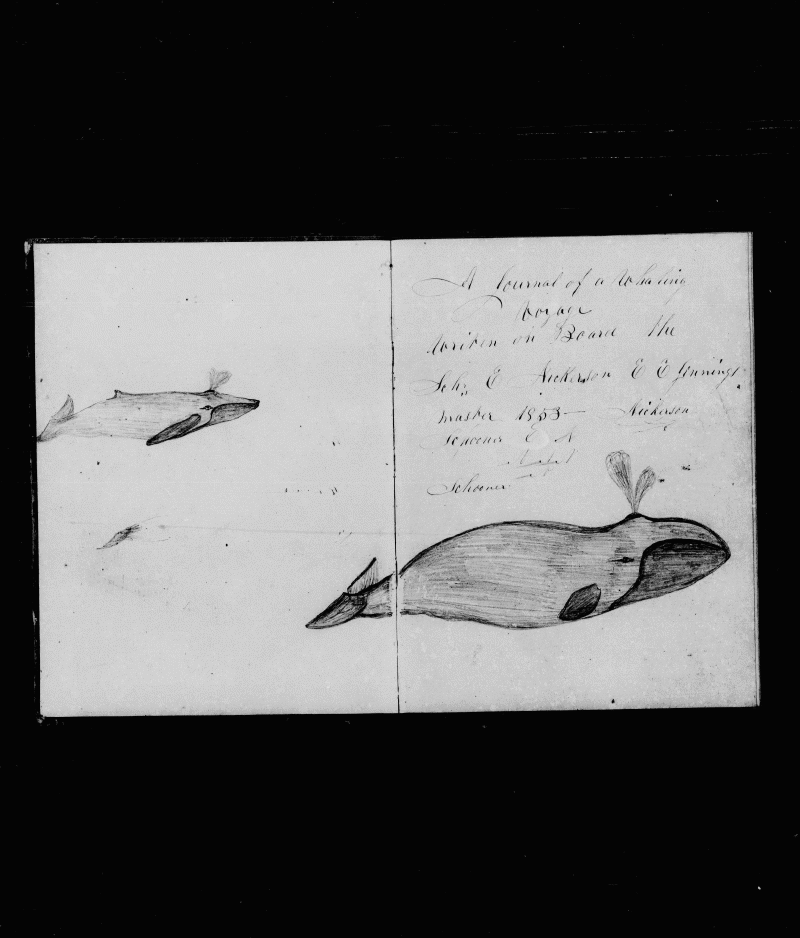 A Journal of a Whaling
Voyage
Writen on Board the
Schr E Nickerson E E Jennings
master 1853 Nickerson
Schooner E N
Schooner